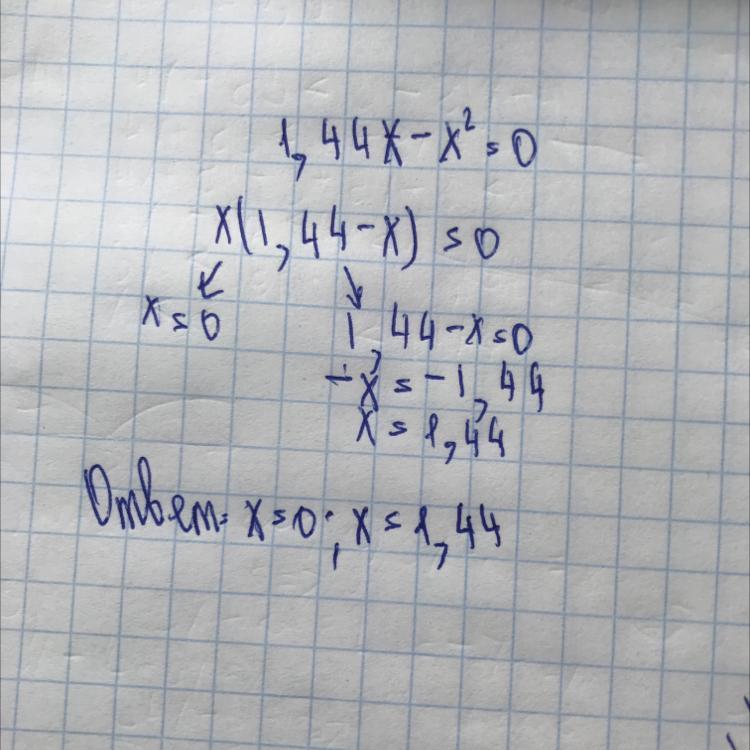 1,44x - x² = 0
x(1,44 - x) = 0
x = 0
1,44 - x = 0
- x = - 1,44
x = 1,44
Ответ: x = 0 ; x = 1,44